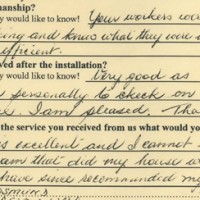 manship?
y would like to know! Your workers we
ing and know what they were
efficient.
ved after the installation?
y would like to know! Very good as
personally to check on
. I am pleased. Tha
the service you received from us what would you
as excellent and I cannot
am that did my house w
have since recommended my